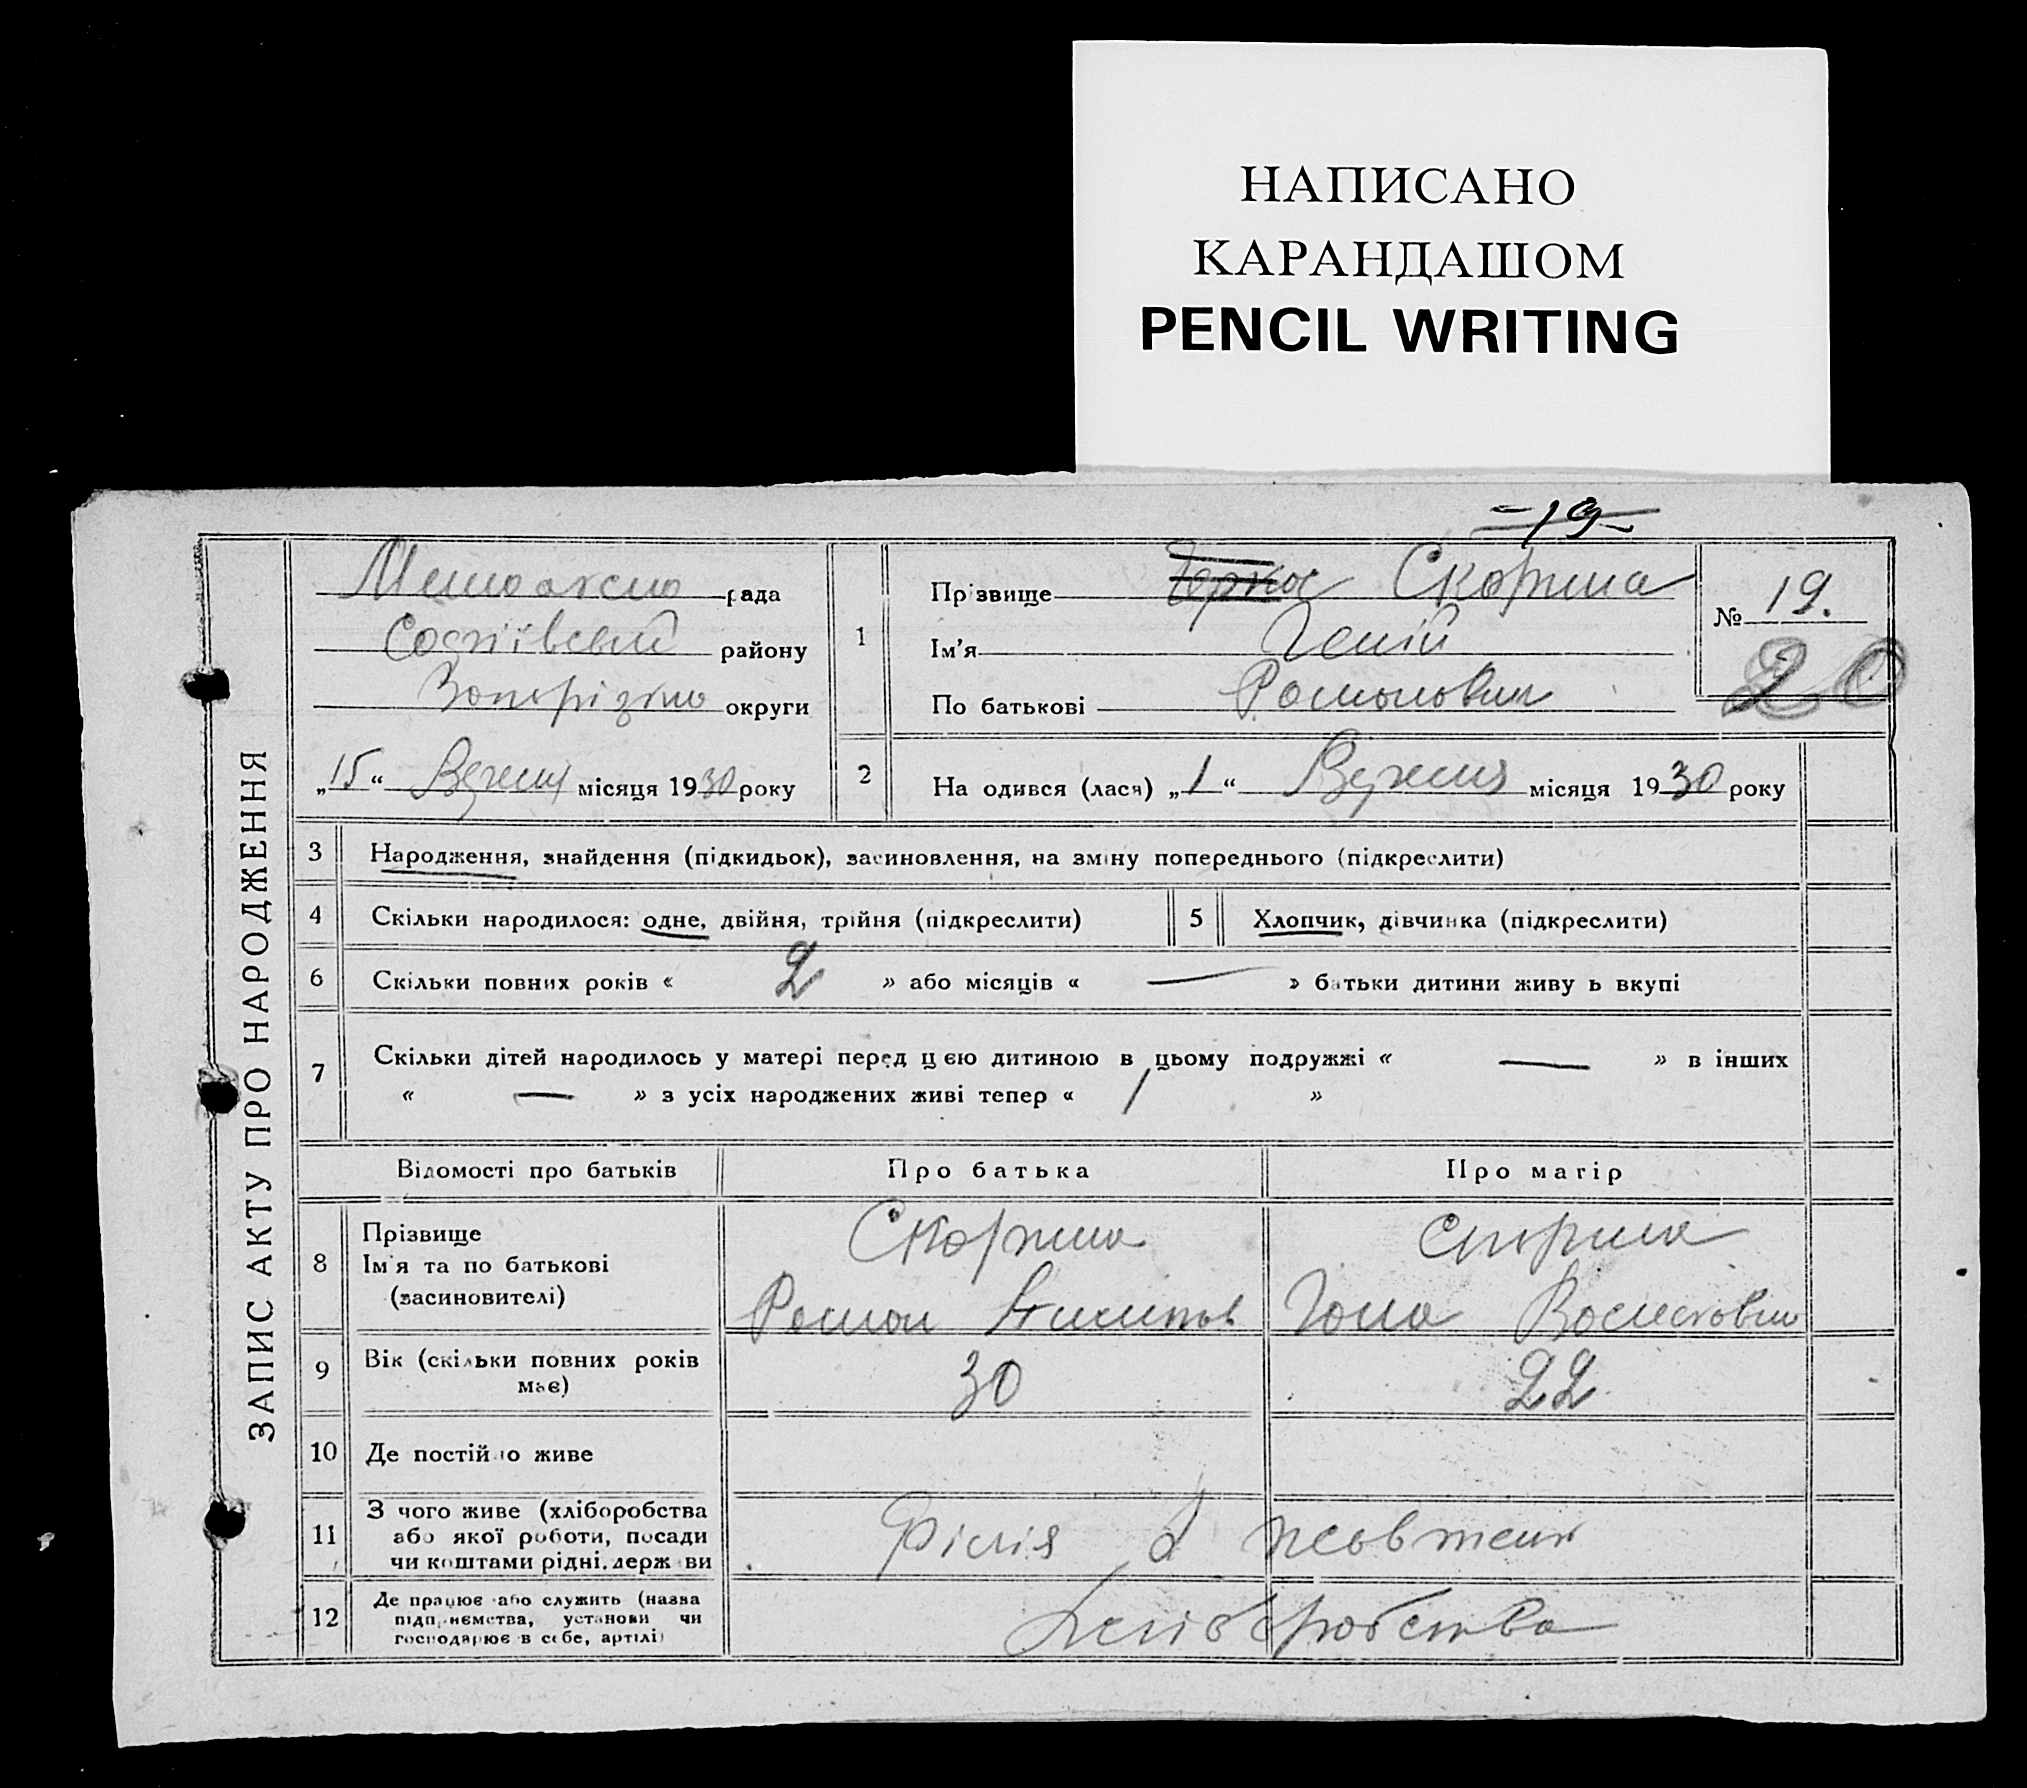 НАПИСАНО
КАРАНДАШОМ
PENCIL WRITING
-19-
ЗАПИС АКТУ ПРО НАРОДЖЕННЯ
рада
Софіївський району
округи
„15“ Вересня місяця 1930 року
1
Прізвище Скорина
Ім'я Геній
По батькові Романович
№ 19.
20
2
Народився (лася) „1“ Вересня місяця 1930 року
3 Народження, знайдення (підкидьок), засиновлення, на зміну попереднього (підкреслити)
4 Скільки народилося: одне, двійня, трійня (підкреслити)
5 Хлопчик, дівчинка (підкреслити)
6 Скільки повних років « 2 » або місяців « — » батьки дитини живуть вкупі
7 Скільки дітей народилось у матері перед цією дитиною в цьому подружжі « — » в інших
« — » з усіх народжених живі тепер « 1 »
Відомості про батьків Про батька Про матір
8 Прізвище
Ім'я та по батькові
(засиновителі)
Скорина
Роман
Скорина
9 Вік (скільки повних років
має)
30 22
10 Де постійно живе
11 З чого живе (хліборобства
або якої роботи, посади
чи коштами рідні, держави
Філія Жовтень
12 Де працює або служить (назва
підприємства, установи чи
господарює в себе, артілі)
Хліборобства